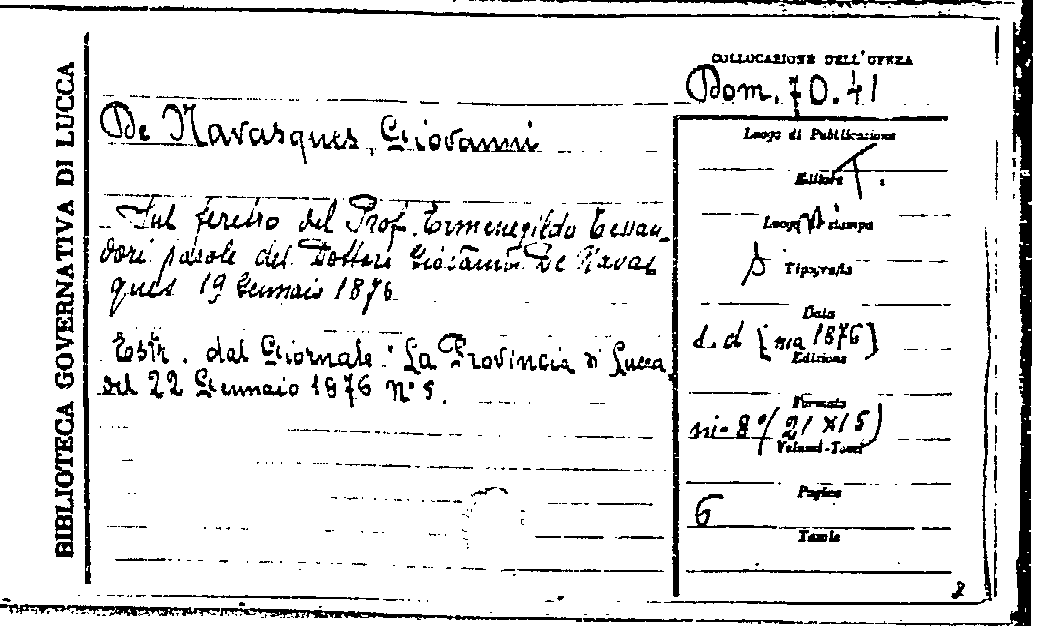 BIBLIOTECA GOVERNATIVA DI LUCCA
COLLOCAZIONE DELL'OPERA
Dom. 70.41
De Navasques, Giovanni
Sul feretro del Prof. Ermenegildo Tessan-
dori parole del Dottore Giovanni De Navas
ques 19 Gennaio 1876
Estr. dal Giornale "La Provincia di Lucca
del 22 Gennaio 1876 N°
Luogo di Pubblicazione
Editore
T.
Luogo di stampa
Tipografia
Data
s.d [ma 1876]
Edizione
Formato
in-8° (21X15)
Volumi-Tomi
Pagine
6
Tavole